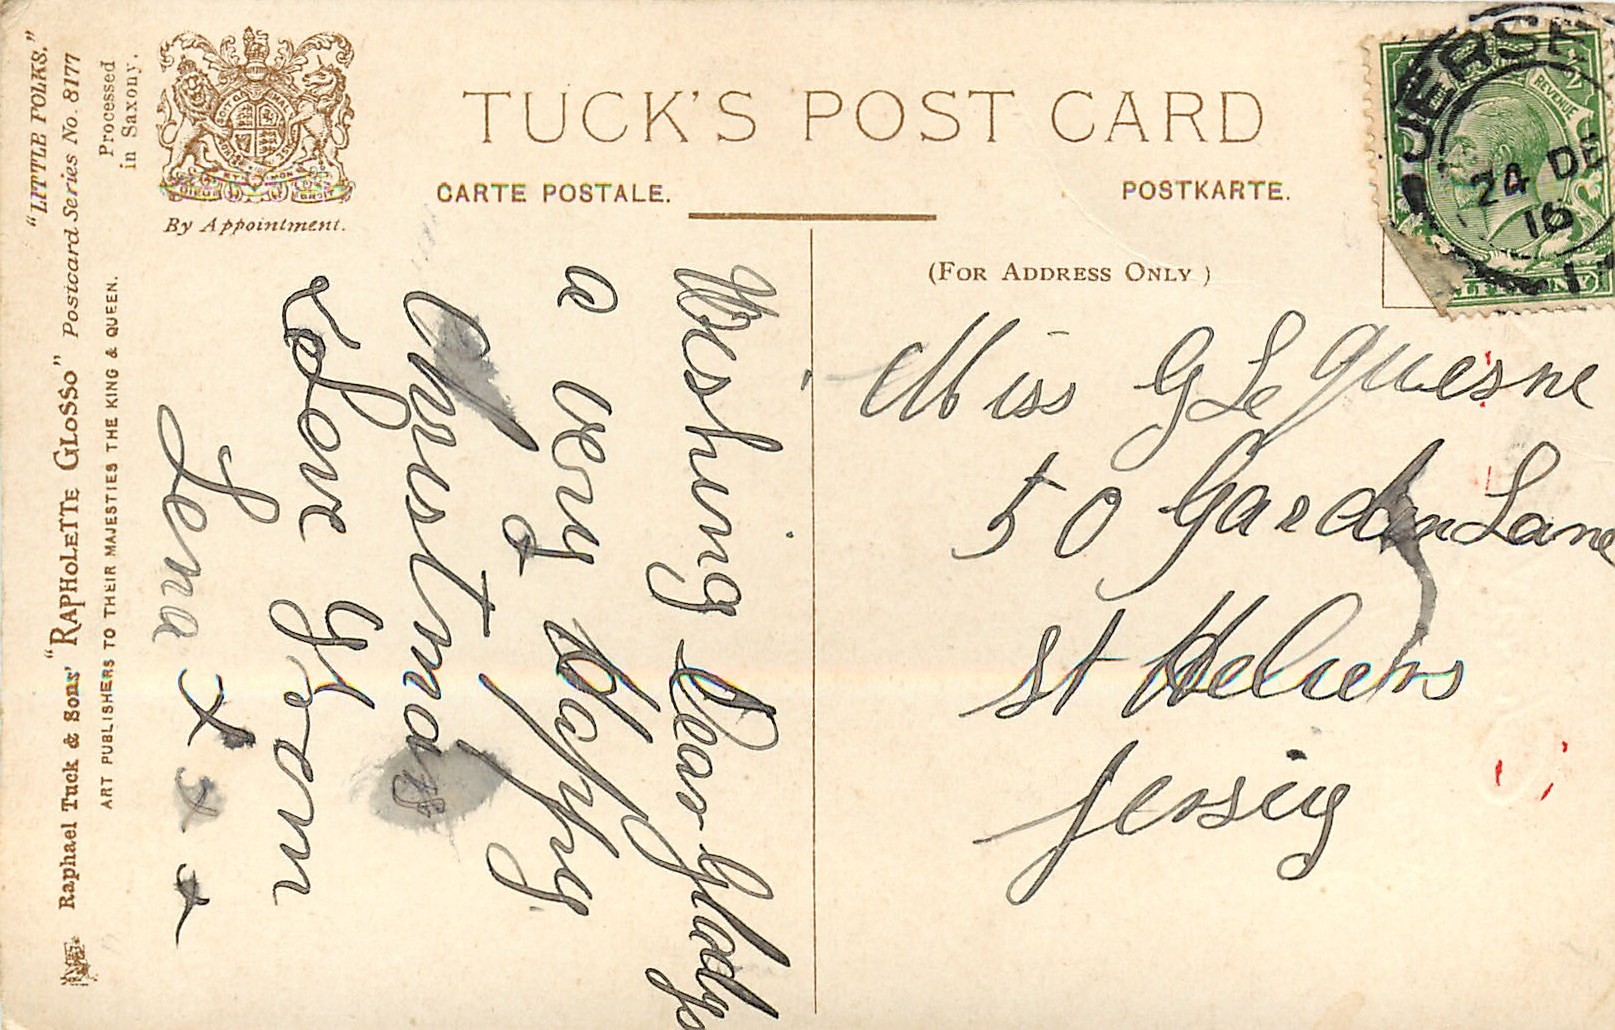 TUCK'S POST CARD
CARTE POSTALE.
POSTKARTE.
(FOR ADDRESS ONLY)
By Appointment.
"LITTLE FOLKS."
Raphael Tuck & Sons' "RAPHOLETTE GLOSSO" Postcard Series No. 8177
ART PUBLISHERS TO THEIR MAJESTIES THE KING & QUEEN.
Processed
in Saxony.
Wishing Dear Gladys
a very Happy
Christmas
Love from
Lena x x x
Miss G Le Quesne
50 Garden Lane
St Heliers
Jersey
JERSEY
24 DE
16
REVENUE